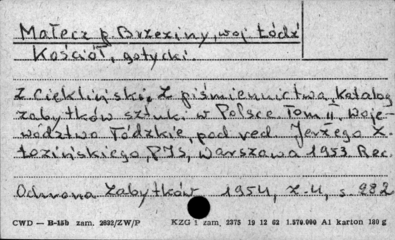 Małecz p. Brzeziny, woj. Łódź
Kościół, gotycki.
Z. Ciekliński, Z piśmiennictwa, Katalog
zabytków sztuki w Polsce Tom II, woje-
wództwo Łódzkie, pod red Jerzego Z.
Łozińskiego, PIS, Warszawa 1953 Rec.
Ochrona Zabytków 1954, z. 4, s. 282
CWD — B-15b zam. 2032/ZW/P KZG 1 zam. 2375 19 12 62 1.570.000 A1 karton 180 g